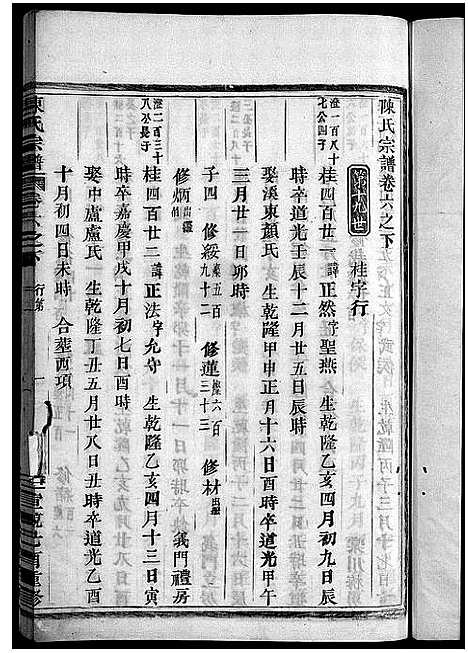 陳氏宗譜卷六之下
桂字行
澄一百八十七公四子
桂四百廿一 諱正然 字聖燕 生乾隆乙亥四月初九日辰
時卒道光壬辰十二月廿五日辰時
娶溪東顏氏 生乾隆甲申正月十六日酉時卒道光甲午
三月廿一日卯時
子四 修綏 九十二 修蓮 三十三 修材 出繼
修炳 出繼 義門禮房
澄二百三十八公長子
桂四百廿二 諱正法 字允守 生乾隆乙亥四月十三日寅
時卒嘉慶甲戌十月初七日酉時
娶中盧盧氏 生乾隆丁丑五月廿八日丑時卒道光乙酉
十月初四日未時 合葬西項
陳氏宗譜 卷六之下 行第 一
宣統元酉重修